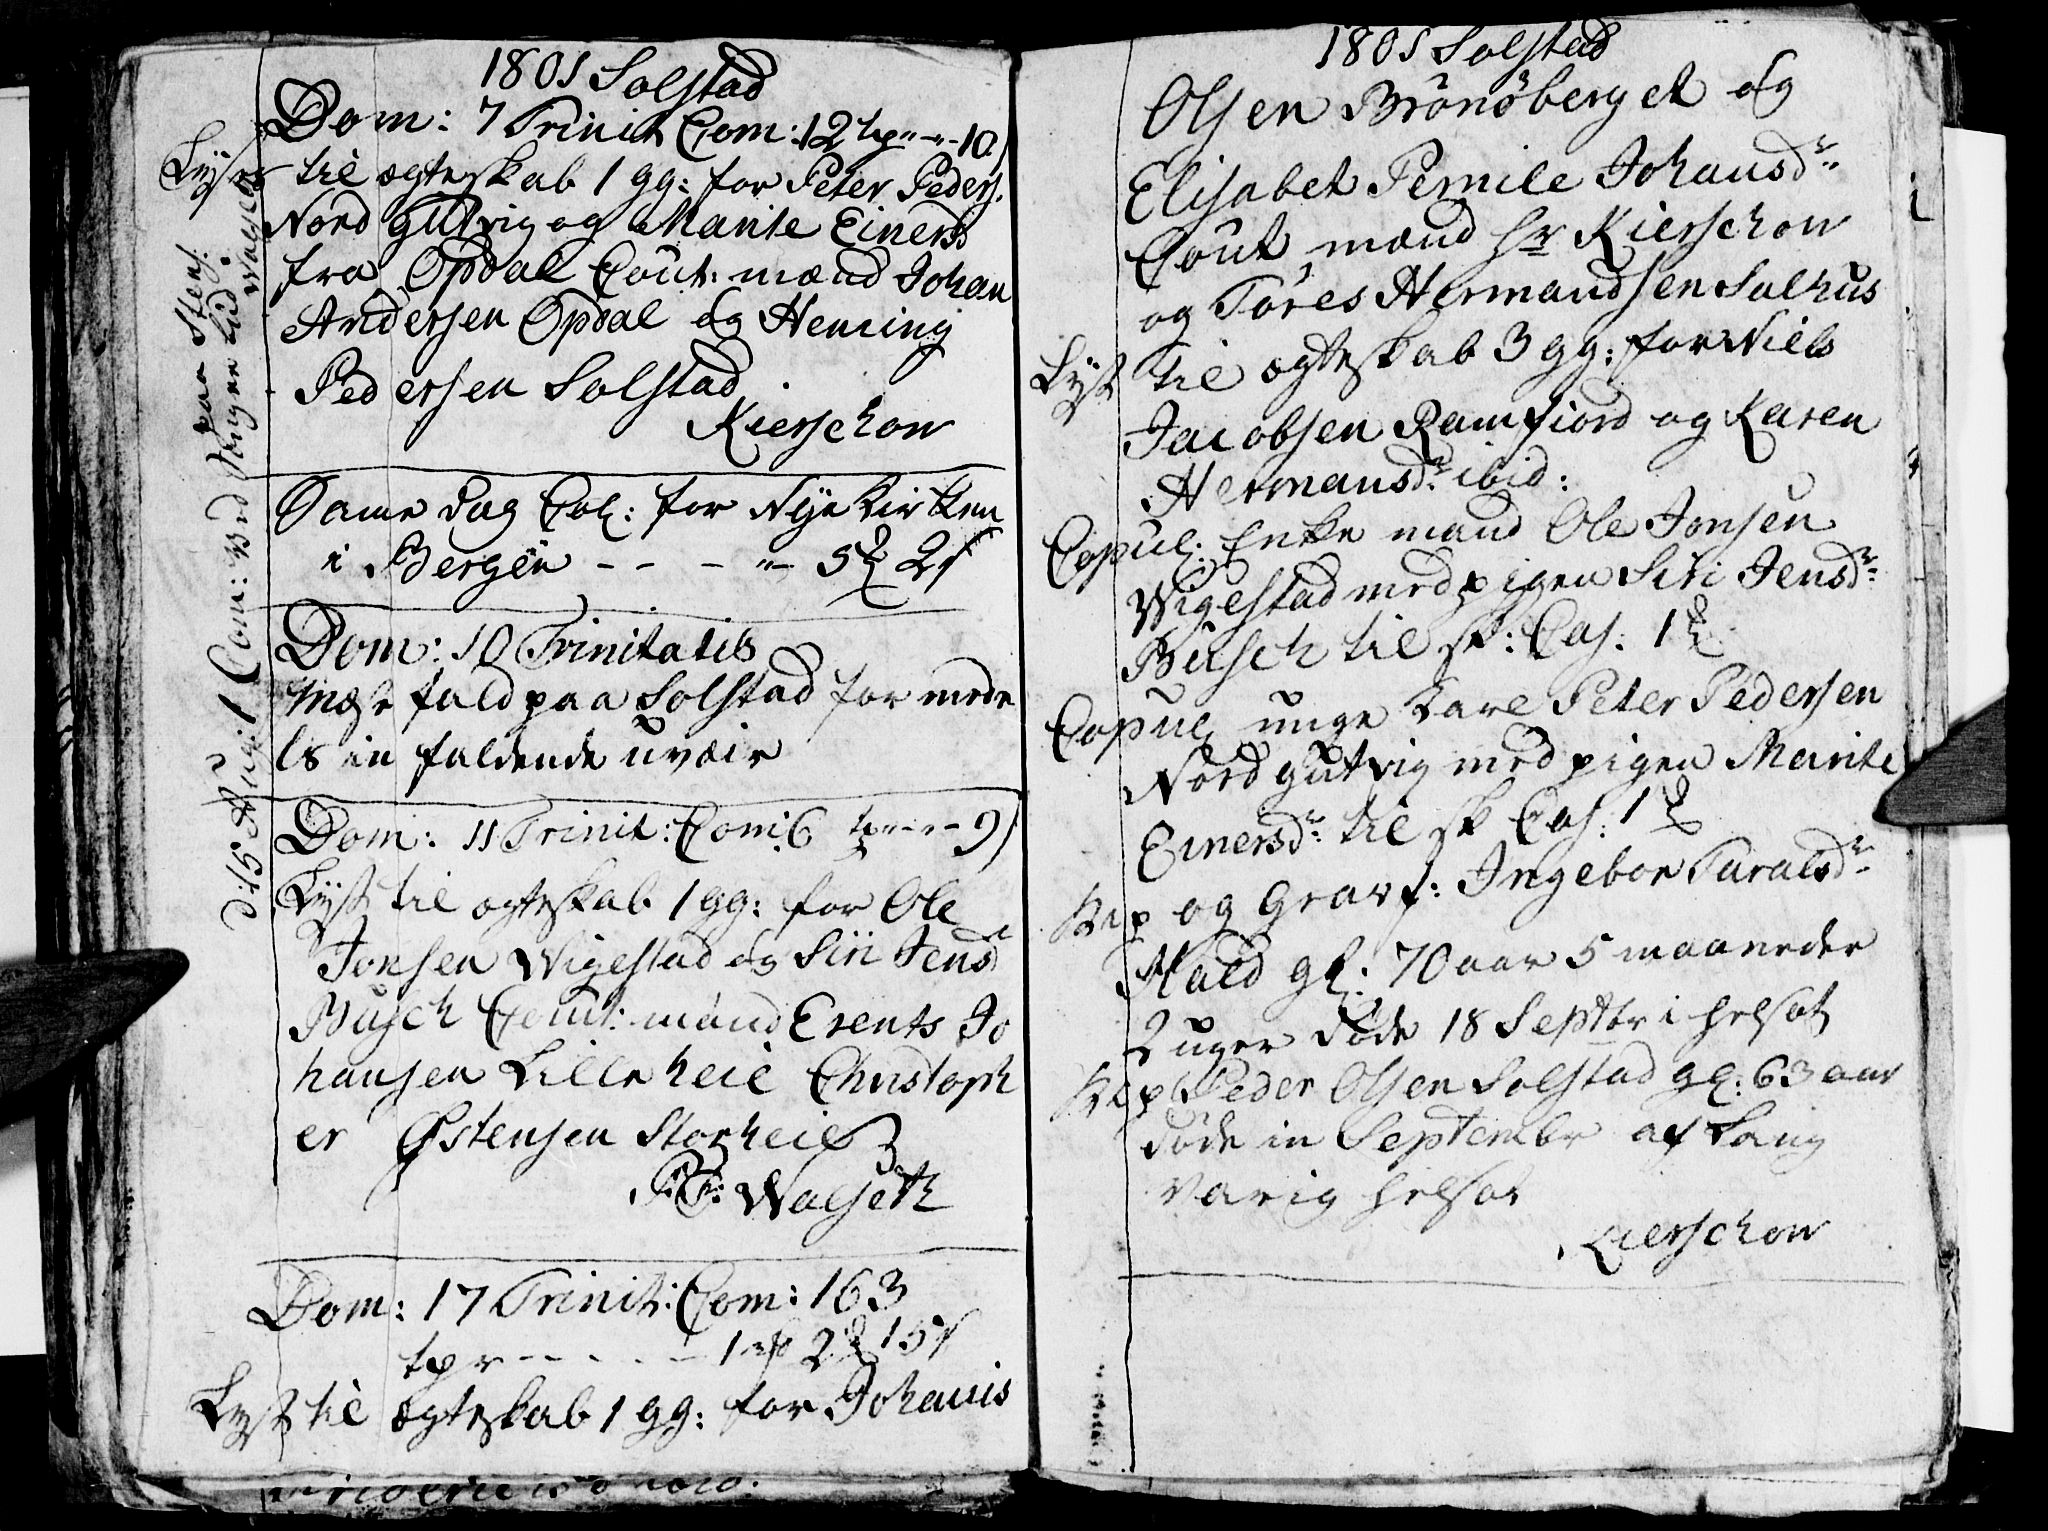 1801 Solstad
Dom: 7 Trinit Com: 12 tpr - - - 10
Lyst til ægteskab 1 gg: for Peter Peders.
Nord Gutvig og Marite Einersd
fra Opdal Cout: mænd Johan
Andersen Opdal og Heming
Pedersen Solstad
Kierschow
Same Dag Col: for Nye Kirken
i Bergen - - - - 5 2
Dom: 10 Trinitatis
Mæsse fald paa Solstad for mede
ls in faldende uvæir
Dom: 11 Trinit: Com: 6 tpr - - - 9
Lyst til ægteskab 1 gg: for Ole
Jonsen Wigestad og Siri Jensd
Busch Cout: mænd Erents Jo
hansen Lille heie Christoph
er Østensen Storheie
Walseth
Dom: 17 Trinit: Com: 163
tpr - - - - - 1 2 15
Lyst til ægteskab 1 gg: for Johanis
d: 15 Aug: 1 Com: ved
paa Stens.
Walseth
1801 Solstad
Olsen Brönöberget og
Elisabet Pernile Johansdr
Cout, mænd Hr Kierschow
og Tores Hermandsen Salhus
Lyst til ægteskab 3 gg: for Niels
Jacobsen Ramfiord og Karen
Hermansdr ibid:
Copul: Enke mand Ole Jonsen
Wigestad med pigen Siri Jensdr
Busch til sk: Cas: 1
Copul unge Karl Peter Pedersen
Nord Gutvig med pigen Marite
Einersdr til sk Cas: 1
og Gravf: Ingebor Taralsdr
Hald gl: 70 aar 5 maaneder
2 uger døde 18 Septbr i helsot
Peder Olsen Solstad gl: 63 aar
døde in Septembr af Lang
varig helsot
Kierschow